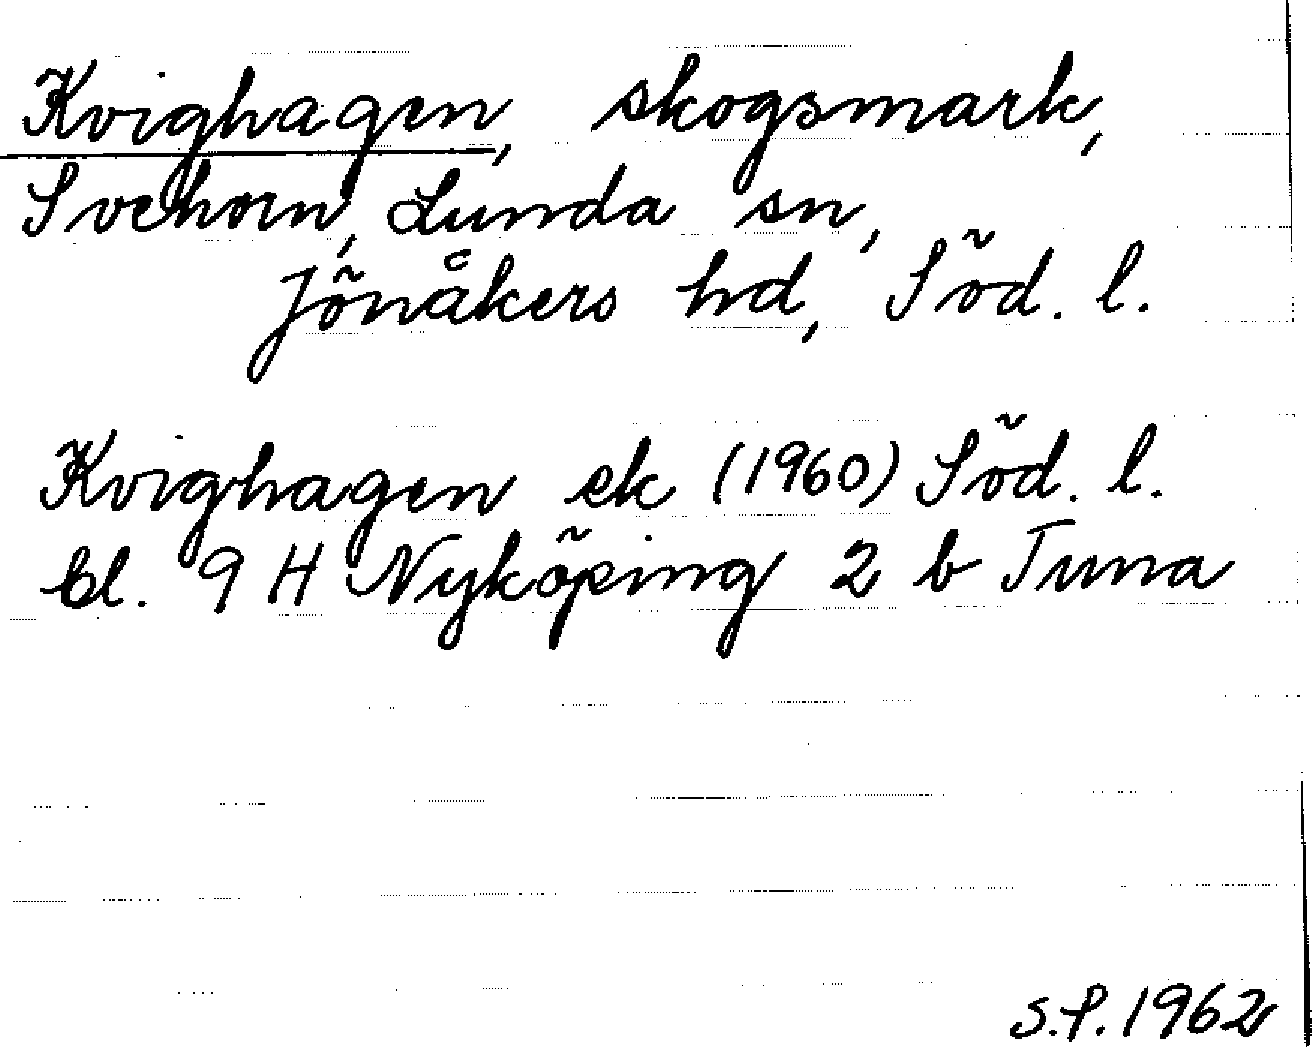 Kvighagen, skogsmark,
Svehorn, Lunda sn,
Jönåkers hd, Söd. l.
Kvighagen ek (1960) Söd. l.
bl. 9 H Nyköping 2 b Tuna
S.P. 1962